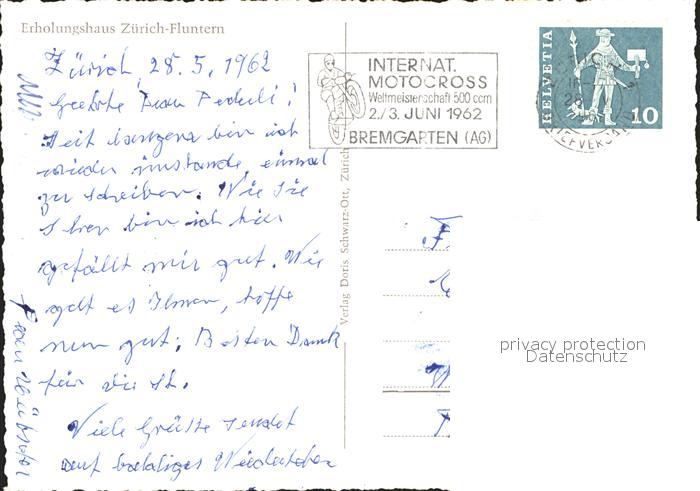 Erholungshaus Zürich-Fluntern
Zürich, 28. 5. 1962
Geehrte Frau Peduli!
Seit langem bin ich
wieder imstande, einmal
zu schreiben. Wie Sie
sehen bin ich hier
gefällt mir gut. Wie
geht es Ihnen, hoffe
nun gut; Besten Dank
für die
Viele Grüsse sendet
auf baldiges Wiedersehen
Frau
Verlag Doris Schwarz-Ott, Zürich
INTERNAT.
MOTOCROSS
Weltmeisterschaft 500 ccm
2./3. JUNI 1962
BREMGARTEN (AG)
HELVETIA
10
privacy protection
Datenschutz